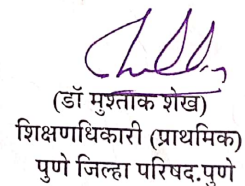 (डॉ मुश्ताक शेख)
शिक्षणाधिकारी (प्राथमिक)
पुणे जिल्हा परिषद.पुणे